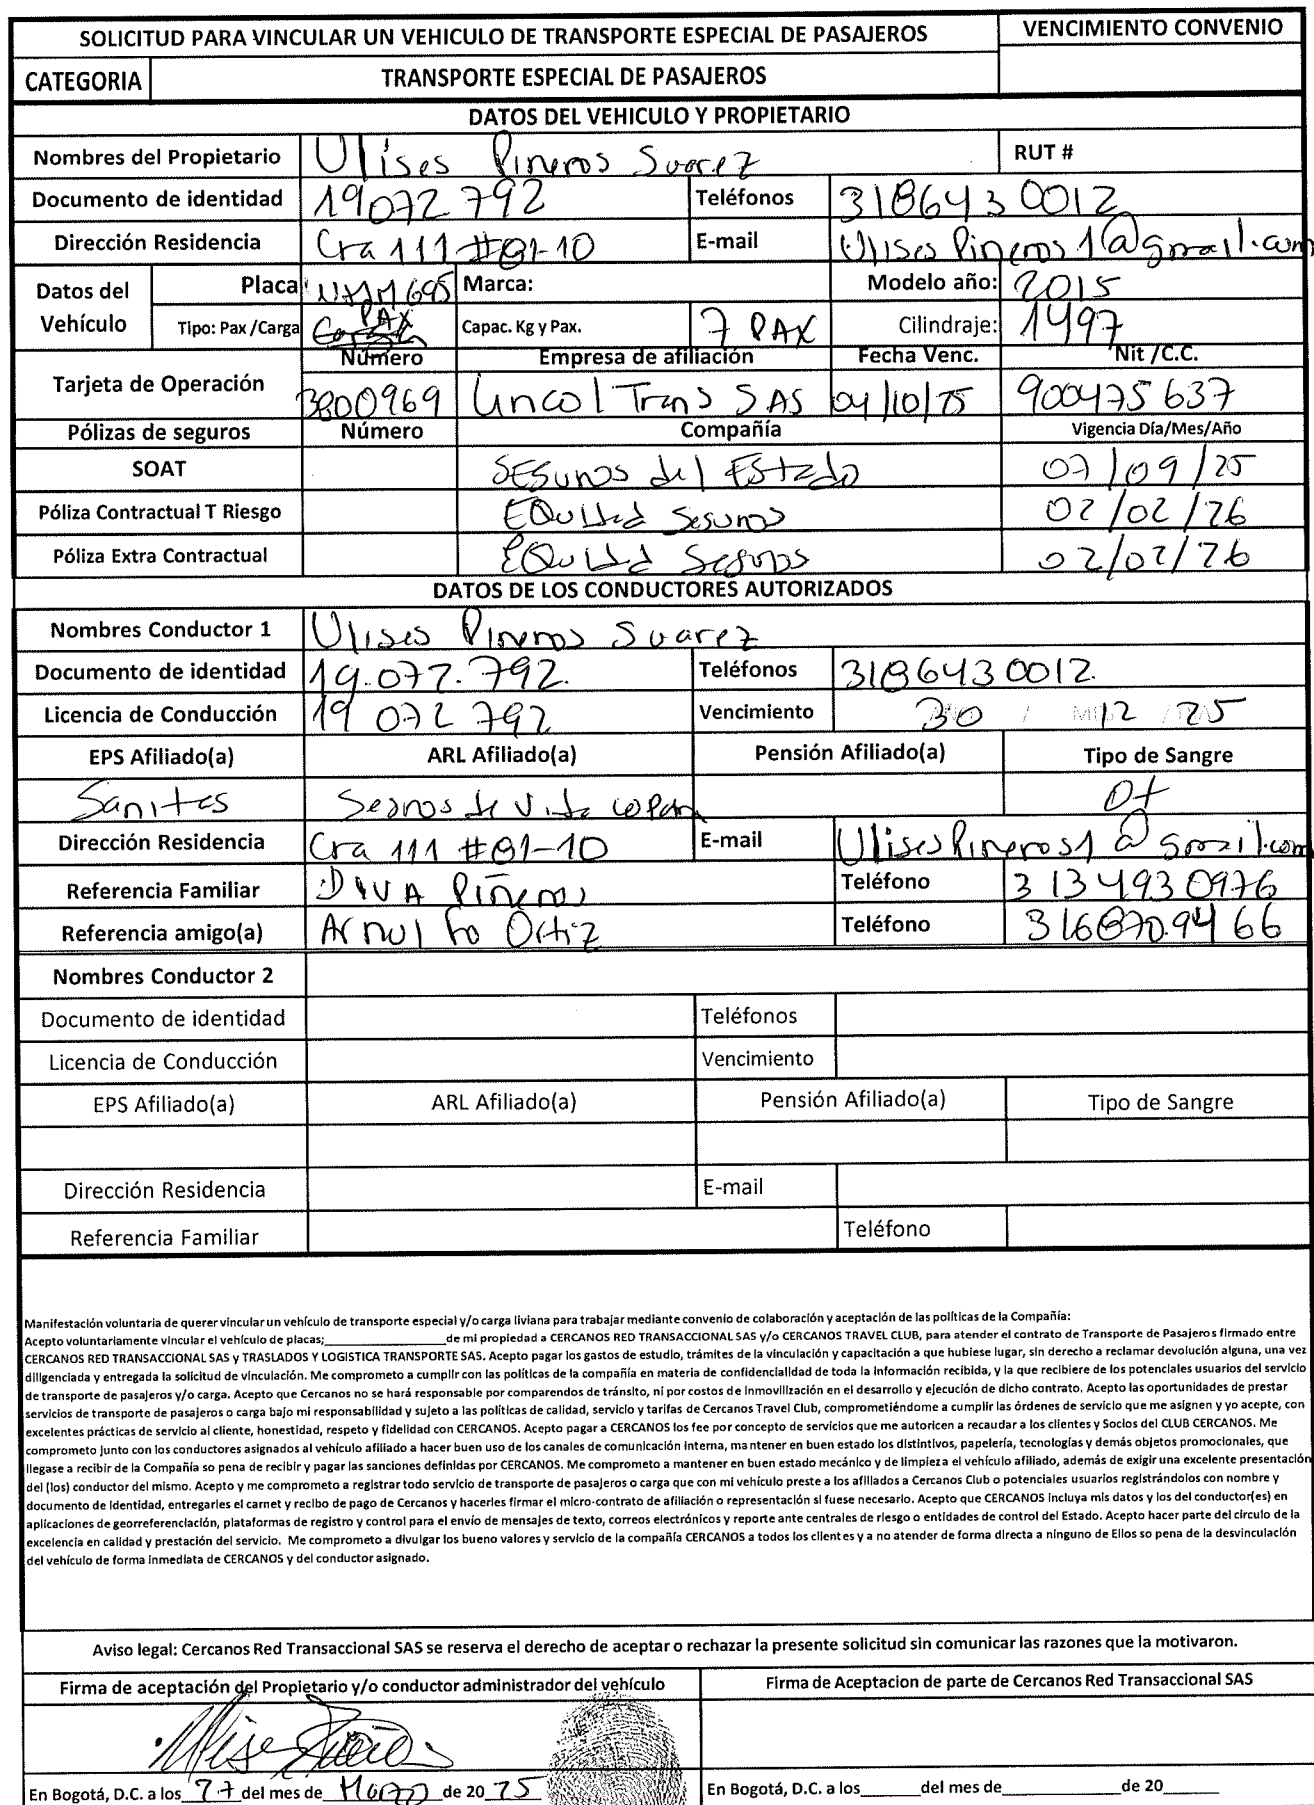 SOLICITUD PARA VINCULAR UN VEHICULO DE TRANSPORTE ESPECIAL DE PASAJEROS
VENCIMIENTO CONVENIO
CATEGORIA
TRANSPORTE ESPECIAL DE PASAJEROS
DATOS DEL VEHICULO Y PROPIETARIO
Nombres del Propietario Ulises Pineros Suarez RUT #
Documento de identidad 19072792 Teléfonos 3186430012
Dirección Residencia Cra 111 #81-10 E-mail UlisesPineros1@gmail.com
Datos del Vehículo
Placa Marca: Modelo año: 2015
Tipo: Pax /Carga PAX Capac. Kg y Pax. 7 PAX Cilindraje: 1497
Tarjeta de Operación
Número Empresa de afiliación Fecha Venc. Nit /C.C.
3800969 Trans SAS 04/10/25 900475637
Pólizas de seguros Número Compañía Vigencia Día/Mes/Año
SOAT Seguros del Estado 07/09/25
Póliza Contractual T Riesgo Equidad Seguros 02/02/26
Póliza Extra Contractual Equidad Seguros 02/02/26
DATOS DE LOS CONDUCTORES AUTORIZADOS
Nombres Conductor 1 Ulises Pineros Suarez
Documento de identidad 19.072.792. Teléfonos 3186430012.
Licencia de Conducción 19 072 792 Vencimiento 30 / 12 25
EPS Afiliado(a) ARL Afiliado(a) Pensión Afiliado(a) Tipo de Sangre
Sanitas Seguros de Vida O+
Dirección Residencia Cra 111 #81-10 E-mail UlisesPineros1@gmail.com
Referencia Familiar Piñeros Teléfono 3134930976
Referencia amigo(a) Arnulfo Ortiz Teléfono 3168709466
Nombres Conductor 2
Documento de identidad Teléfonos
Licencia de Conducción Vencimiento
EPS Afiliado(a) ARL Afiliado(a) Pensión Afiliado(a) Tipo de Sangre
Dirección Residencia E-mail
Referencia Familiar Teléfono
Manifestación voluntaria de querer vincular un vehículo de transporte especial y/o carga liviana para trabajar mediante convenio de colaboración y aceptación de las políticas de la Compañía:
Acepto voluntariamente vincular el vehículo de placas;_______________de mi propiedad a CERCANOS RED TRANSACCIONAL SAS y/o CERCANOS TRAVEL CLUB, para atender el contrato de Transporte de Pasajeros firmado entre
CERCANOS RED TRANSACCIONAL SAS y TRASLADOS Y LOGISTICA TRANSPORTE SAS. Acepto pagar los gastos de estudio, trámites de la vinculación y capacitación a que hubiese lugar, sin derecho a reclamar devolución alguna, una vez
diligenciada y entregada la solicitud de vinculación. Me comprometo a cumplir con las políticas de la compañía en materia de confidencialidad de toda la información recibida, y la que recibiere de los potenciales usuarios del servicio
de transporte de pasajeros y/o carga. Acepto que Cercanos no se hará responsable por comparendos de tránsito, ni por costos de inmovilización en el desarrollo y ejecución de dicho contrato. Acepto las oportunidades de prestar
servicios de transporte de pasajeros o carga bajo mi responsabilidad y sujeto a las políticas de calidad, servicio y tarifas de Cercanos Travel Club, comprometiéndome a cumplir las órdenes de servicio que me asignen y yo acepte, con
excelentes prácticas de servicio al cliente, honestidad, respeto y fidelidad con CERCANOS. Acepto pagar a CERCANOS los fee por concepto de servicios que me autoricen a recaudar a los clientes y Socios del CLUB CERCANOS. Me
comprometo junto con los conductores asignados al vehículo afiliado a hacer buen uso de los canales de comunicación interna, mantener en buen estado los distintivos, papelería, tecnologías y demás objetos promocionales, que
llegase a recibir de la Compañía so pena de recibir y pagar las sanciones definidas por CERCANOS. Me comprometo a mantener en buen estado mecánico y de limpieza el vehículo afiliado, además de exigir una excelente presentación
del (los) conductor del mismo. Acepto y me comprometo a registrar todo servicio de transporte de pasajeros o carga que con mi vehículo preste a los afiliados a Cercanos Club o potenciales usuarios registrándolos con nombre y
documento de identidad, entregarles el carnet y recibo de pago de Cercanos y hacerles firmar el micro-contrato de afiliación o representación si fuese necesario. Acepto que CERCANOS incluya mis datos y los del conductor(es) en
aplicaciones de georreferenciación, plataformas de registro y control para el envío de mensajes de texto, correos electrónicos y reporte ante centrales de riesgo o entidades de control del Estado. Acepto hacer parte del círculo de la
excelencia en calidad y prestación del servicio. Me comprometo a divulgar los bueno valores y servicio de la compañía CERCANOS a todos los clientes y a no atender de forma directa a ninguno de Ellos so pena de la desvinculación
del vehículo de forma inmediata de CERCANOS y del conductor asignado.
Aviso legal: Cercanos Red Transaccional SAS se reserva el derecho de aceptar o rechazar la presente solicitud sin comunicar las razones que la motivaron.
Firma de aceptación del Propietario y/o conductor administrador del vehículo
Firma de Aceptacion de parte de Cercanos Red Transaccional SAS
En Bogotá, D.C. a los 27 del mes de Marzo de 20 25
En Bogotá, D.C. a los______del mes de____________de 20_____